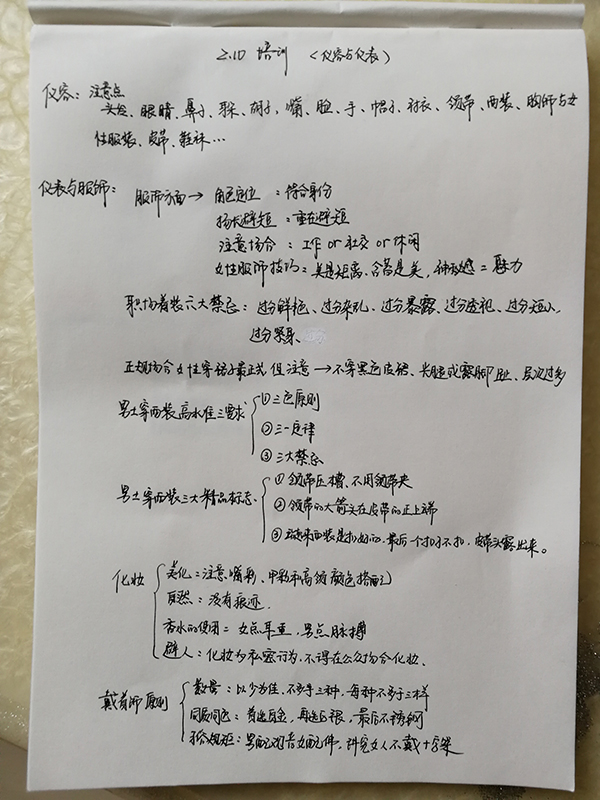 2.10 培训 （仪容与仪表）
仪容：注意点
头发、眼睛、鼻子、耳朵、胡子、嘴、脸、手、帽子、衬衣、领带、西装、胸饰与女
性服装、皮带、鞋袜…
仪表与服饰：服饰方面→ 角色定位：符合身份
扬长避短：重在避短
注意场合：工作 or 社交 or 休闲
女性服饰技巧＝美是距离、含蓄是美，神秘感＝魅力
职场着装六大禁忌：过分鲜艳、过分杂乱、过分暴露、过分透视、过分短小、
过分紧身、
正规场合女性穿裙子最正式但注意→不穿黑色皮裙、光腿或露脚趾、层次过多
男士穿西装高水准三要求 ①三色原则
②三一定律
③三大禁忌
男士穿西装三大精品标志、 ①领带压槽、不用领带夹
②领带的大箭头在皮带的正上端
③ 西装是扣好的，最后一个扣子不扣，皮带头露出来。
化妆 美化：注意嘴彩、甲彩和高级颜色搭配
自然：没有痕迹．
香水的使用＝女点耳垂，男点脉搏
避人：化妆为私密行为，不得在公众场合化妆、
戴首饰原则 数量：以少为佳，不多于三种，每种不多于三样
同质同色：首选 色，再选 银，最后不锈钢
符合规矩：男 女 ，讲究女人不戴十字架